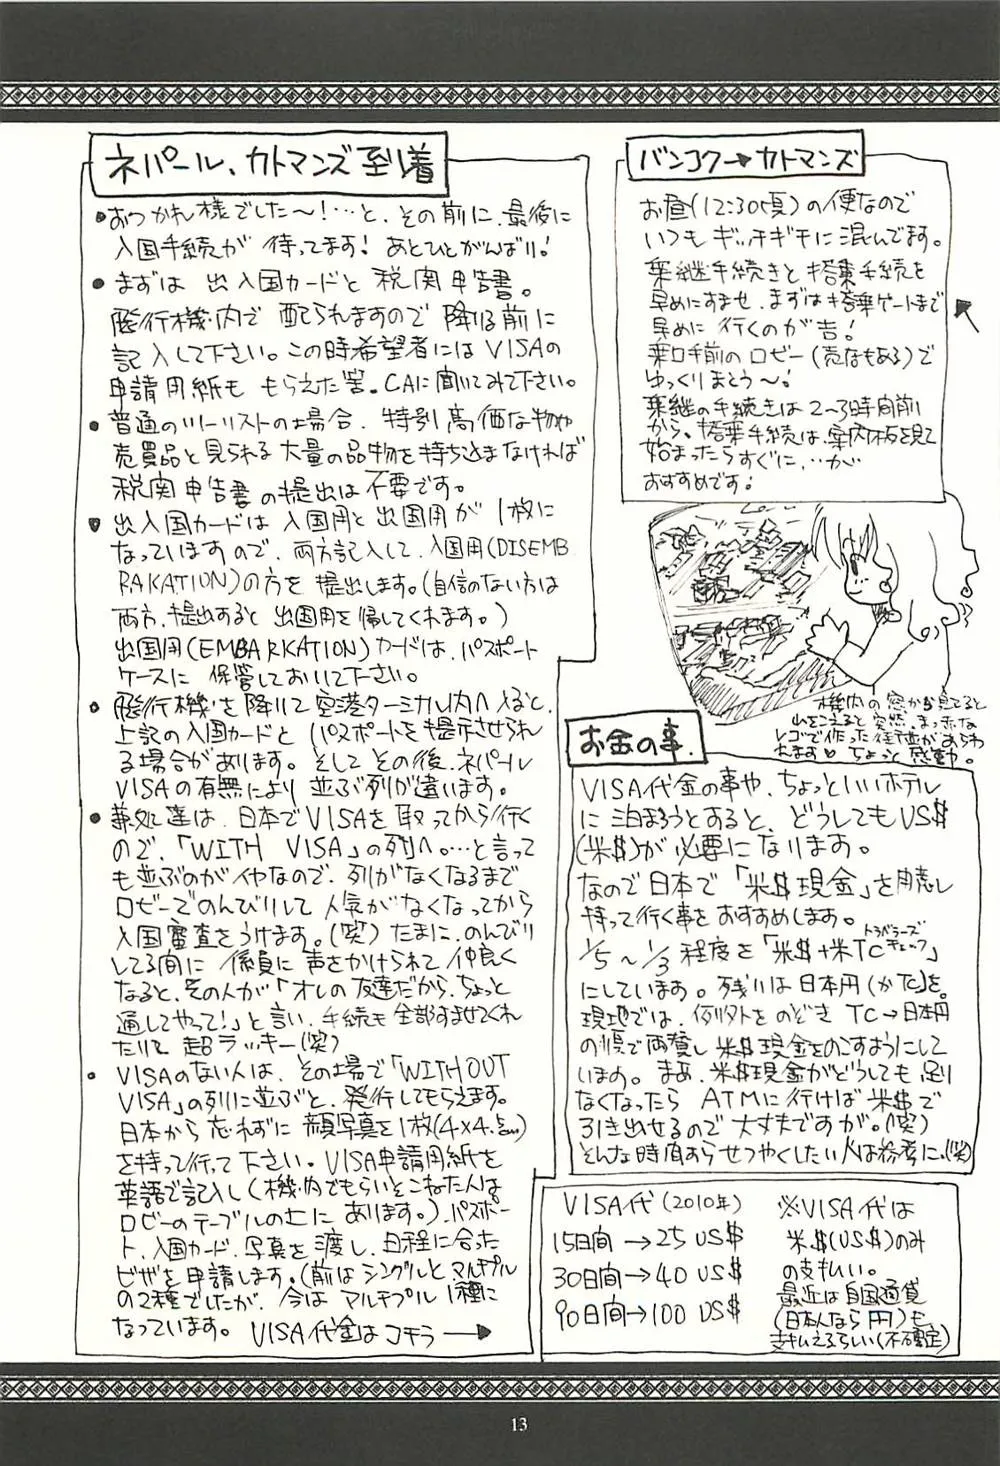 バンコク→カトマンズ
お昼(12:30頃)の便なので
いつもギッチギチに混んでます。
乗継手続きと搭乗手続を
早めにすませ、まずは搭乗ゲートまで
早めに行くのが吉!
乗口手前のロビー(売店もある)で
ゆっくりまとう〜!
乗継の手続きは2〜3時間前
から、搭乗手続は、案内板を見て
始まったらすぐに、‥が
おすすめです!
機内の窓から見てると
山をこえると突然、まっ赤な
レゴで作った街並があらわ
れます♡ ちょっと感動。
ネパール、カトマンズ到着
●おつかれ様でした〜!…と、その前に、最後に
入国手続が待ってます!あとひとがんばり!
●まずは 出入国カードと 税関申告書。
飛行機内で配られますので降りる前に
記入して下さい。この時希望者にはVISAの
申請用紙も もらえた筈。CAに聞いてみて下さい。
●普通のツーリストの場合、特別高価な物や
売買品と見られる大量の品物を持ち込まなければ
税関申告書の提出は不要です。
●出入国カードは入国用と出国用が1枚に
なっていますので、両方記入して、入国用(DISEMB
RAKATION)の方を提出します。(自信のない方は
両方、提出すると出国用を帰してくれます。)
出国用(EMBARKATION)カードは、パスポート
ケースに保管しておいて下さい。
●飛行機を降りて空港ターミナル内へ入ると、
上記の入国カードとパスポートを提示させられ
る場合があります。そしてその後、ネパール
VISAの有無により並ぶ列が違います。
●兼処達は、日本でVISAを取ってから行く
ので、「WITH VISA」の列へ。…と言って
も並ぶのがイヤなので、列がなくなるまで
ロビーでのんびりして人気がなくなってから
入国審査をうけます。(笑)たまに、のんびり
してる間に係員に声をかけられて、仲良く
なると、その人が「オレの友達だから、ちょっと
通してやって!」と言い、手続も全部すませてくれ
たりして超ラッキー(笑)
●VISAのない人は、その場で「WITHOUT
VISA」の列に並ぶと、発行してもらえます。
日本から忘れずに顔写真を1枚(4×4.5cm)
を持って行って下さい。VISA申請用紙を
英語で記入し(機内でもらいそこねた人は
ロビーのテーブルの上にあります。)、パスポー
ト、入国カード、写真を渡し、日程に合った
ビザを申請します。(前はシングルとマルチプル
の2種でしたが、今はマルチプル1種に
なっています。 VISA代金はコチラ→
お金の事。
VISA代金の事や、ちょっといいホテル
に泊まろうとすると、どうしてもUS$
(米$)が必要になります。
なので日本で「米$現金」を用意し
持って行く事をおすすめします。
1/5〜1/3程度を「米$+米TC(トラベラーズチェック)」
にしています。残りは日本円(かた)を。
現地では、例外をのぞき TC→日本円
の順で両替し米$現金をのこすようにして
います。まあ、米$現金がどうしても足り
なくなったら ATMに行けば米$で
引き出せるので大丈夫ですが。(笑)
そんな時間あらせつやくしたい人は参考に。(笑)
VISA代(2010年)
15日間→25 US$
30日間→40 US$
90日間→100 US$
※VISA代は
米$(US$)のみ
の支払い。
最近は自国通貨
(日本人なら円)も
支払えるらしい(不確定)
13